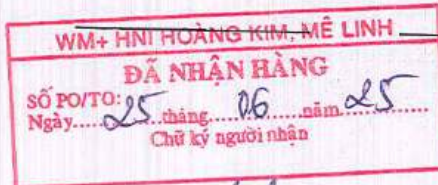 WM+ HNI HOÀNG KIM, MÊ LINH
ĐÃ NHẬN HÀNG
SỐ PO/TO:
Ngày.....25.tháng....06....năm.25......
Chữ ký người nhận